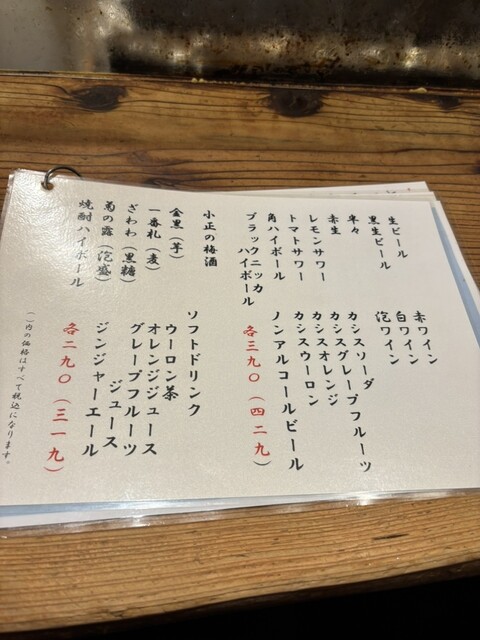 生ビール
黒生ビール
半々
赤生
レモンサワー
トマトサワー
角ハイボール
ブラックニッカ
ハイボール
小正の梅酒
金黒（芋）
一番札（麦）
ざわわ（黒糖）
菊の露（泡盛）
焼酎ハイボール
赤ワイン
白ワイン
泡ワイン
カシスソーダ
カシスグレープフルーツ
カシスオレンジ
カシスウーロン
ノンアルコールビール
各三九〇（四二九）
ソフトドリンク
ウーロン茶
オレンジジュース
グレープフルーツ
ジュース
ジンジャーエール
各二九〇（三一九）
（）内の価格はすべて税込になります。